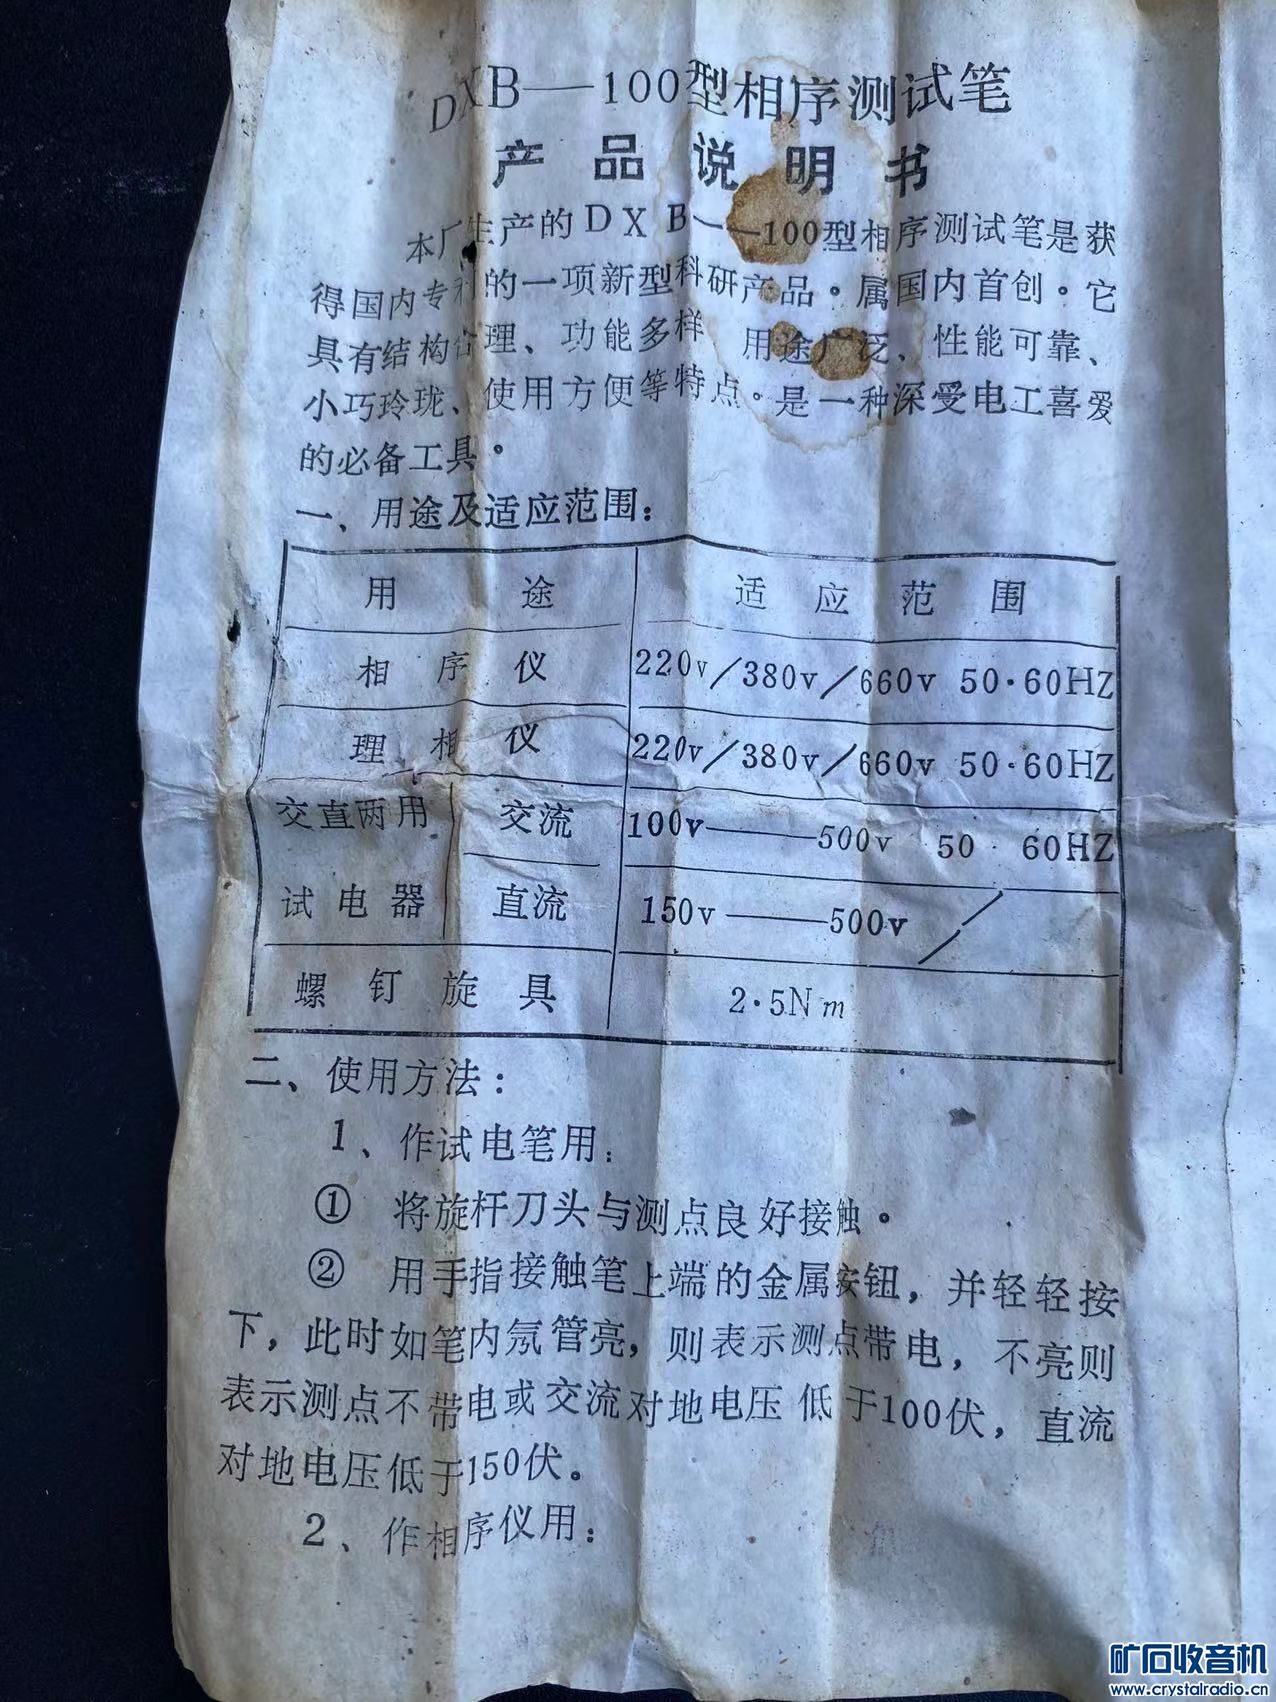 DXB—100型相序测试笔
产品说明书
本厂生产的DXB—100型相序测试笔是获
得国内专利的一项新型科研产品。属国内首创。它
具有结构合理、功能多样 用途广泛、性能可靠、
小巧玲珑、使用方便等特点。是一种深受电工喜爱
的必备工具。
一、用途及适应范围：
用途 适应范围
相序仪 220v/380v/660v 50·60HZ
理相仪 220v/380v/660v 50·60HZ
交直两用 交流 100v——500v 50·60HZ
试电器 直流 150v——500v /
螺钉旋具 2·5Nm
二、使用方法：
1、作试电笔用：
① 将旋杆刀头与测点良好接触。
② 用手指接触笔上端的金属按钮，并轻轻按
下，此时如笔内氖管亮，则表示测点带电，不亮则
表示测点不带电或交流对地电压低于100伏，直流
对地电压低于150伏。
2、作相序仪用：
矿石收音机
www.crystalradio.cn